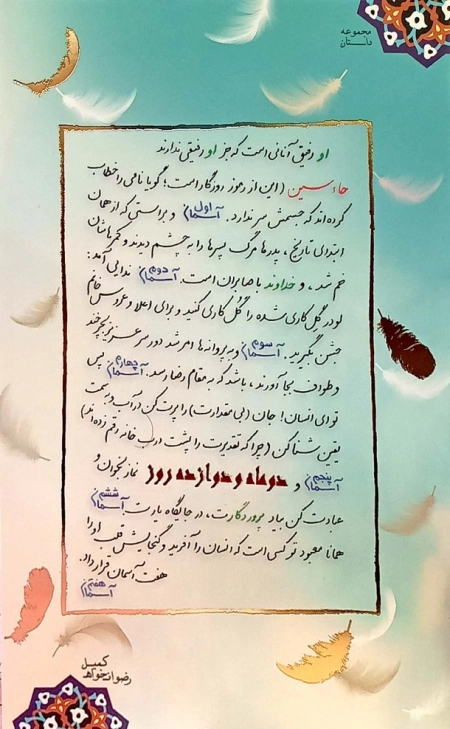 مجموعه
داستان
او رفیق آنانی است که جز او رفیقی ندارند
حاءسین (این از رموز روزگار است؛ گویا نامی را خطاب
کرده‌اند که جسمش سر ندارد. آسمان اول و براستی که از همان
ابتدای تاریخ، پدرها مرگ پسرها را به چشم دیدند و کمرهاشان
خم شد، و خداوند با صابران است. آسمان دوم ندایی آمد:
لودر گِل کاری شده را گُل کاری کنید و برای اعلا و عروس خانم
جشن بگیرید. آسمان سوم و به پروانه‌ها امر شد دور سر عزیز بچرخند
و طواف بجا آورند، باشد که به مقام رضا رسد. آسمان چهارم پس
تو ای انسان! جان (بی مقدارت) را پرت کن در آب و به سمت
یقین شنا کن (چرا که تقدیرت را پشت درب خانه رقم زده‌اند)
آسمان پنجم و دو ماه و دوازده روز نماز بخوان و
عبادت کن بیاد پروردگارت، در جایگاه یارت آسمان ششم
همانا معبود تو کسی است که انسان را آفرید و گنجایش قلب او را
هفت آسمان قرار داد.
آسمان هفتم
کمیل
رضوانخواه